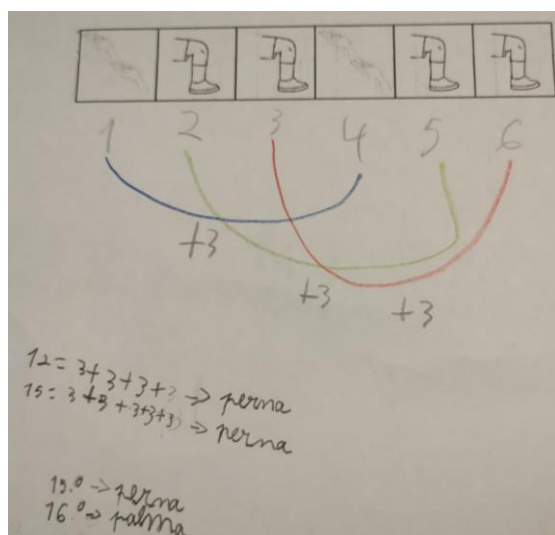 1 2 3 4 5 6
+3
+3 +3
12 = 3+3+3+3 -> perna
15 = 3+3+3+3+3 -> perna
15.º -> perna
16.º -> palma